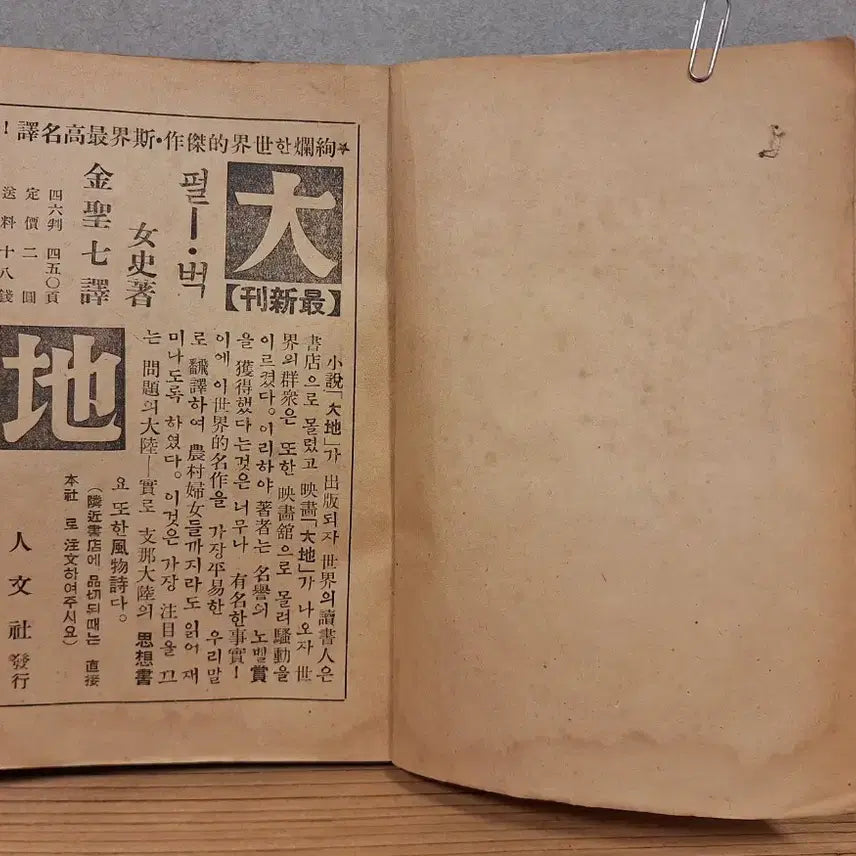 ★絢爛한世界的傑作·斯界最高名譯!
大
【最新刊】
펄ー·벅
女史著
金聖七譯
四六判 四五〇頁
定價二圓
送料十八錢
地
小說「大地」가 出版되자 世界의 讀書人은
書店으로 몰렸고 映畵「大地」가 나오자 世
界의 群衆은 또한 映畵舘으로 몰려 騷動을
이르켰다。이리하야 著者는 名譽의 노벨賞
을 獲得했다는것은 너무나 有名한事實!
이에 이世界的名作을 가장平易한 우리말
로 飜譯하여 農村婦女들까지라도 읽어 재
미나도록 하였다。이것은 가장 注目을 끄
는 問題의大陸——實로 支那大陸의 思想書
요 또한風物詩다。
(隣近書店에 品切되때는 直接
本社 로 注文하여주시요)
人文社 發行